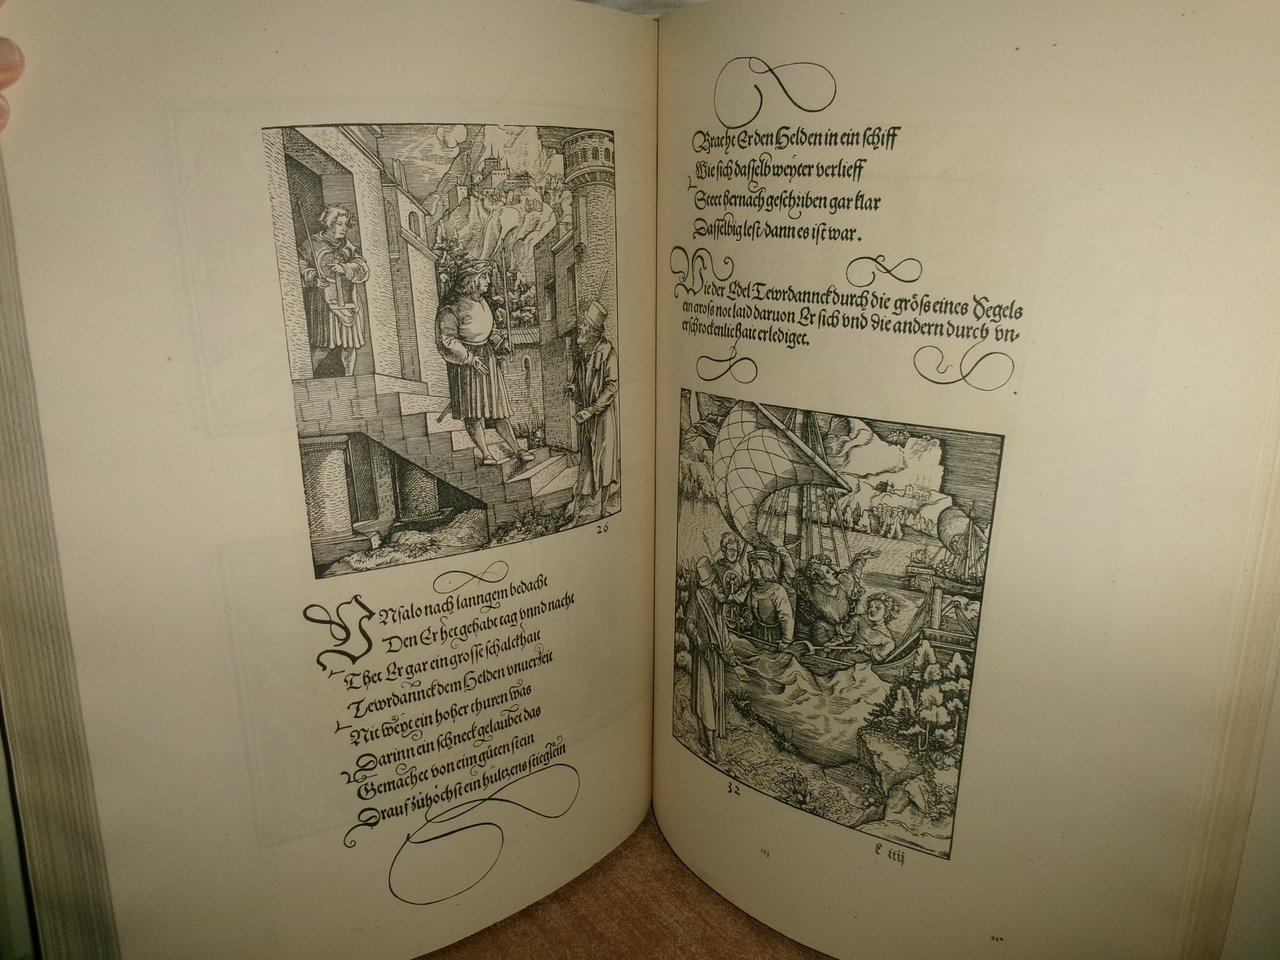 26
VNfalo nach lanngem bedacht
Den Er het gehabt tag vnnd nacht
Thet Er gar ein grosse schalckhait
Tewrdannck dem Helden vnuerzeit
Nit weyt ein hoher thuren was
Darinn ein schneck gelaubet das
Gemachet von eim gůten stein
Drauf zůhöchst ein hültzens stieglein
Bracht Er den Helden in ein schiff
Wie sich dasselb weyter verlieff
Steet hernach geschriben gar klar
Dasselbig lest/dann es ist war.
Wie der Edel Tewrdannck durch die größ eines Segels
ein gross not laid daruon Er sich vnd die andern durch vn-
erschrockenlichait erlediget.
32
k iiij
163